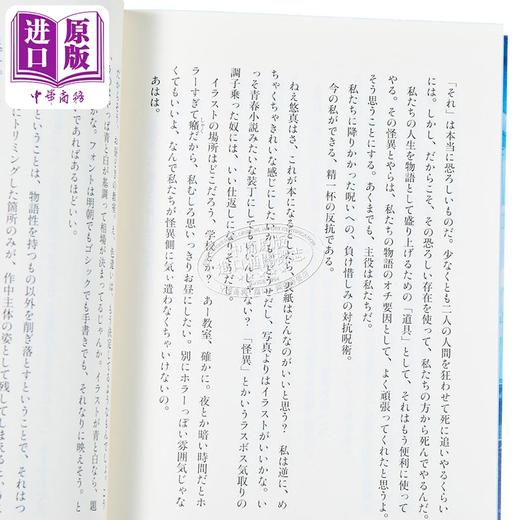 进口
原版
中華商務
「それ」は本当に恐ろしいものだ。少なくとも二人の人間を狂わせて死に追いやるくらい
には。しかし、だからこそ、その恐ろしい存在を使って、私たちの方から死んでやるんだ。
私たちの人生を物語として盛り上げるための「道具」として、それはもう便利に使って
やる。その怪異とやらは、私たちの物語のオチ要因として、よく頑張ってくれたと思うよ。
そう思うことにする。あくまでも、主役は私たちだ。
私たちに降りかかった呪いへの、負け惜しみの対抗呪術。
今の私ができる、精一杯の反抗である。
ねえ悠真はさ、これが本になるとしたら、表紙はどんなのがいいと思う？　私は逆に、め
ちゃくちゃきれいな感じにしたいかも。どうせだし、写真よりはイラストがいいかな。い
っそ青春小説みたいな装丁にしてもいいんじゃない？　「怪異」とかいうラスボス気取りの
調子乗った奴には、いい仕返しになりそうだし。
イラストの場所はどこだろう、学校とか？　あー教室、確かに。夜とか暗い時間だとホ
ラーすぎて癪だから、私むしろ思いっきりお昼にしたい。別にホラーっぽい雰囲気じゃな
くてもいいよ、なんで私たちが怪異側に気ぃ遣わなくちゃいけないの。
あはは。
っぽい青と白が基調って相場が決まってるじゃんか。イラストが青と白なら、題
かな。フォントは明朝でもゴシックでも手書きでも、それなりに映えそう。と
いであればあるほどいい。
ということは、物語性を持つもの以外を削ぎ落とすということで、それはつ
にトリミングした箇所のみが、作中主体の姿として残してしまえると